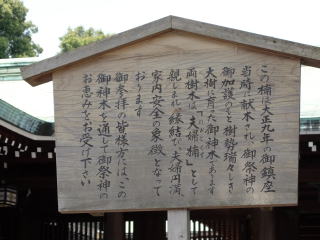 この楠は大正九年の御鎮座
当時に献木され御祭神の
御加護のもと樹勢瑞々しき
大樹に育った御神木であります
両樹木は「夫婦楠」として
親しまれ縁結び、夫婦円満、
家内安全の象徴となって
おります
御参拝の皆様方には、この
御神木を通して御祭神の
お恵みをお受け下さい